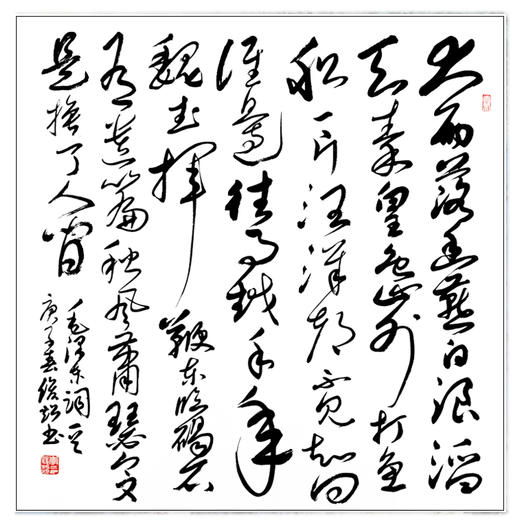 大雨落幽燕白浪滔
天秦皇岛外打鱼
船一片汪洋都不见知向
谁边往事越千年
魏武挥鞭东临碣石
有遗篇秋风萧瑟今又
是换了人间
毛泽东词
庚子春书